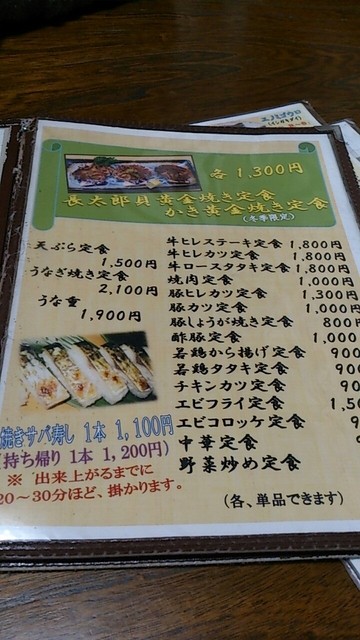 各1,300円
長太郎貝黄金焼き定食
かき黄金焼き定食
(冬季限定)
天ぷら定食
1,500円
うなぎ焼き定食
2,100円
うな重
1,900円
焼きサバ寿し 1本 1,100円
持ち帰り 1本 1,200円)
※ 出来上がるまでに
20～30分ほど、掛かります。
牛ヒレステーキ定食 1,800円
牛ヒレカツ定食 1,800円
牛ロースタタキ定食 1,800円
焼肉定食 1,000円
豚ヒレカツ定食 1,300円
豚カツ定食 1,000円
豚しょうが焼き定食 800
酢豚定食 1,000
若鶏から揚げ定食 900
若鶏タタキ定食 900
チキンカツ定食 90
エビフライ定食 1,50
エビコロッケ定食 9
中華定食
野菜炒め定食
(各、単品できます)